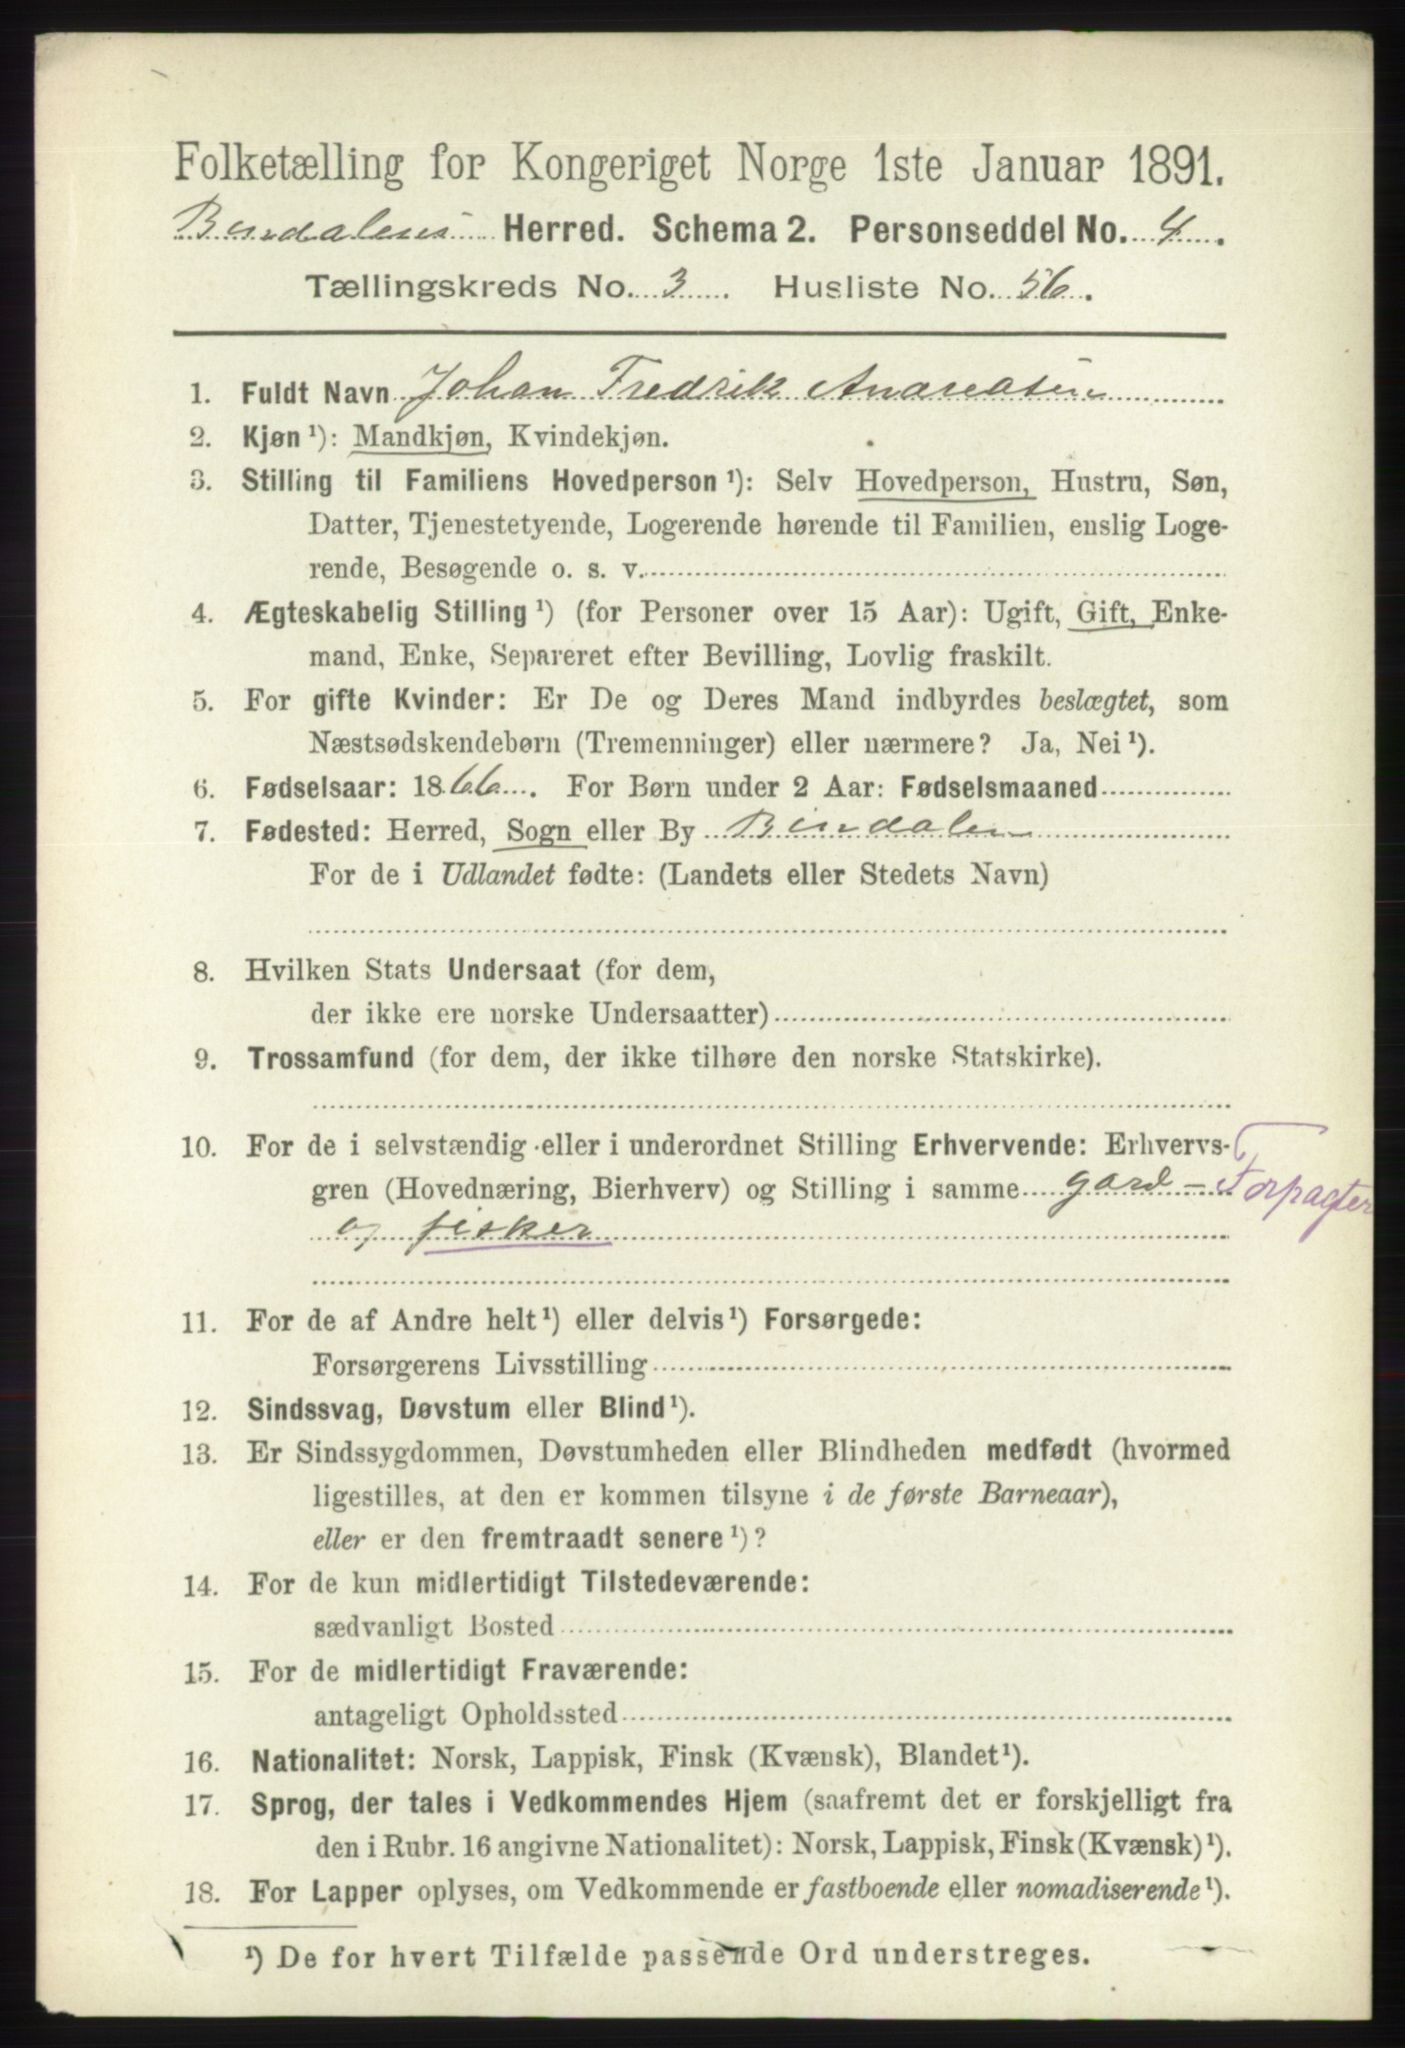 Folketælling for Kongeriget Norge 1ste Januar 1891.
Bindalens Herred. Schema 2. Personseddel No. 4.
Tællingskreds No. 3. Husliste No. 56.
1. Fuldt Navn Johan Fredrik Andreasen
2. Kjøn ¹): Mandkjøn, Kvindekjøn.
3. Stilling til Familiens Hovedperson ¹): Selv Hovedperson, Hustru, Søn,
Datter, Tjenestetyende, Logerende hørende til Familien, enslig Loge-
rende, Besøgende o. s. v.
4. Ægteskabelig Stilling ¹) (for Personer over 15 Aar): Ugift, Gift, Enke-
mand, Enke, Separeret efter Bevilling, Lovlig fraskilt.
5. For gifte Kvinder: Er De og Deres Mand indbyrdes beslægtet, som
Næstsødskendebørn (Tremenninger) eller nærmere? Ja, Nei ¹).
6. Fødselsaar: 1866. For Børn under 2 Aar: Fødselsmaaned
7. Fødested: Herred, Sogn eller By Bindalen
For de i Udlandet fødte: (Landets eller Stedets Navn)
8. Hvilken Stats Undersaat (for dem,
der ikke ere norske Undersaatter)
9. Trossamfund (for dem, der ikke tilhøre den norske Statskirke).
10. For de i selvstændig eller i underordnet Stilling Erhvervende: Erhvervs-
gren (Hovednæring, Bierhverv) og Stilling i samme gard - Forpagter
og fisker
11. For de af Andre helt ¹) eller delvis ¹) Forsørgede:
Forsørgerens Livsstilling
12. Sindssvag, Døvstum eller Blind ¹).
13. Er Sindssygdommen, Døvstumheden eller Blindheden medfødt (hvormed
ligestilles, at den er kommen tilsyne i de første Barneaar),
eller er den fremtraadt senere ¹)?
14. For de kun midlertidigt Tilstedeværende:
sædvanligt Bosted
15. For de midlertidigt Fraværende:
antageligt Opholdssted
16. Nationalitet: Norsk, Lappisk, Finsk (Kvænsk), Blandet ¹).
17. Sprog, der tales i Vedkommendes Hjem (saafremt det er forskjelligt fra
den i Rubr. 16 angivne Nationalitet): Norsk, Lappisk, Finsk (Kvænsk) ¹).
18. For Lapper oplyses, om Vedkommende er fastboende eller nomadiserende ¹).
¹) De for hvert Tilfælde passende Ord understreges.